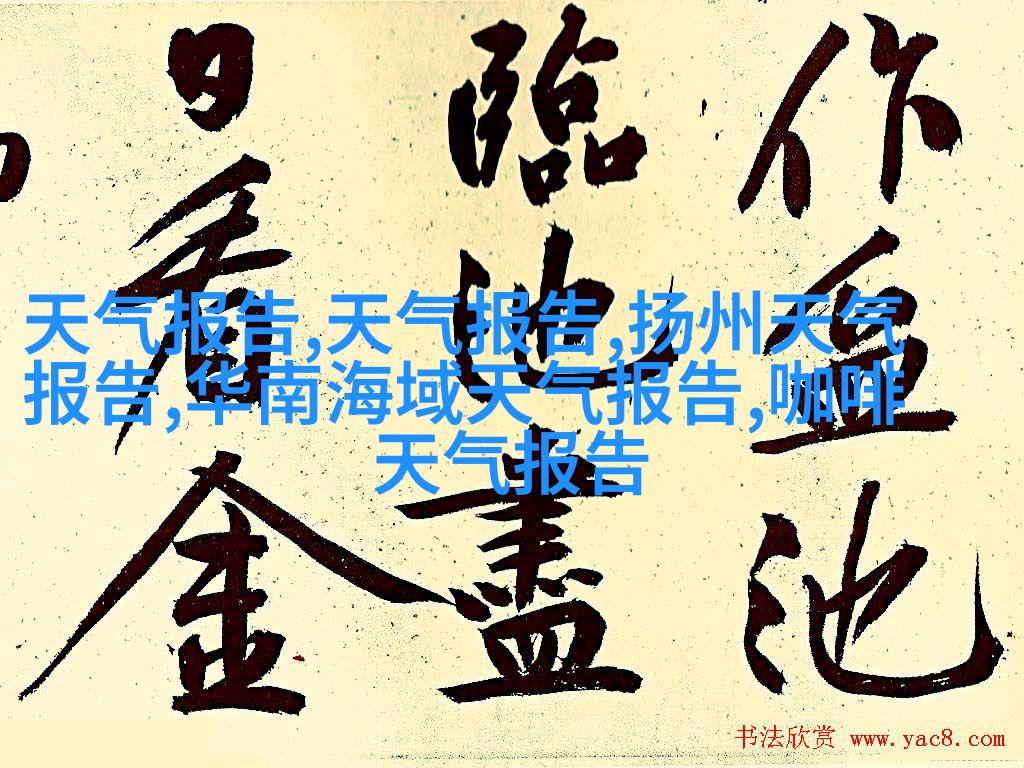 作盆池
臨池盡
日看金
天气报告,天气报告,扬州天气
报告,华南海域天气报告,咖啡
天气报告
书法欣赏 www.yac8.com